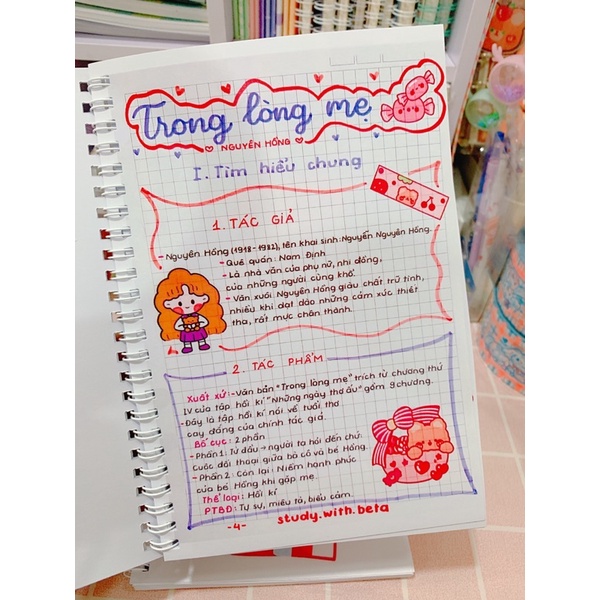 Trong lòng mẹ
NGUYÊN HỒNG
I. Tìm hiểu chung
1. TÁC GIẢ
- Nguyên Hồng (1918-1982), tên khai sinh: Nguyễn Nguyên Hồng.
- Quê quán: Nam Định
- Là nhà văn của phụ nữ, nhi đồng,
của những người cùng khổ.
- Văn xuôi Nguyên Hồng giàu chất trữ tình,
nhiều khi dạt dào những cảm xúc thiết
tha, rất mực chân thành.
2. TÁC PHẨM
Xuất xứ: - Văn bản "Trong lòng mẹ" trích từ chương thứ
IV của tập hồi kí "Những ngày thơ ấu" gồm 9 chương.
- Đây là tập hồi kí nói về tuổi thơ
cay đắng của chính tác giả.
Bố cục: 2 phần
- Phần 1: Từ đầu → người ta hỏi đến chứ:
Cuộc đối thoại giữa bà cô và bé Hồng.
- Phần 2: Còn lại: Niềm hạnh phúc
của bé Hồng khi gặp mẹ.
Thể loại: Hồi kí
PTBĐ: Tự sự, miêu tả, biểu cảm.
-4-
study.with.beta